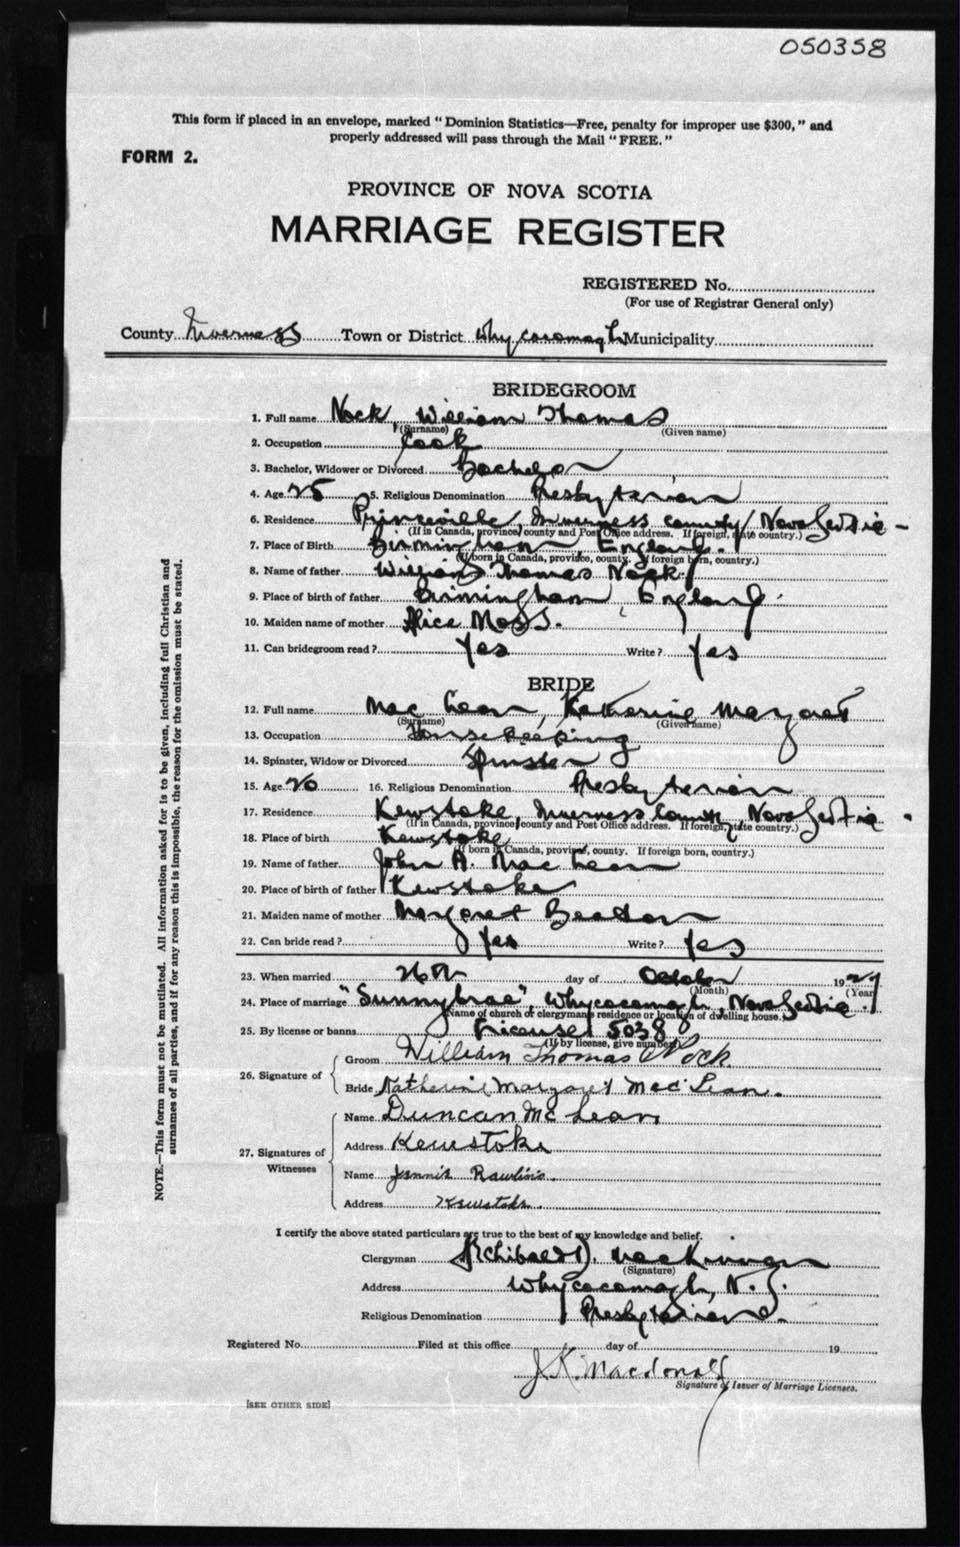 050358
This form if placed in an envelope, marked "Dominion Statistics—Free, penalty for improper use $300," and
properly addressed will pass through the Mail "FREE."
FORM 2.
PROVINCE OF NOVA SCOTIA
MARRIAGE REGISTER
REGISTERED No.
(For use of Registrar General only)
County Inverness Town or District Whycocomagh Municipality
BRIDEGROOM
1. Full name Nock, William Thomas
(Surname) (Given name)
2. Occupation Cook
3. Bachelor, Widower or Divorced Bachelor
4. Age 25 5. Religious Denomination Presbyterian
6. Residence Princeville, Inverness County, Nova Scotia
(If in Canada, province, county and Post Office address. If foreign, state country.)
7. Place of Birth Birmingham, England.
(If born in Canada, province, county. If foreign born, country.)
8. Name of father William Thomas Nock
9. Place of birth of father Birmingham, England.
10. Maiden name of mother Alice Moss.
11. Can bridegroom read? Yes Write? Yes
BRIDE
12. Full name MacLean, Katherine Margaret
(Surname) (Given name)
13. Occupation Housekeeping
14. Spinster, Widow or Divorced Spinster
15. Age 20 16. Religious Denomination Presbyterian
17. Residence Kewstoke, Inverness County, Nova Scotia.
(If in Canada, province, county and Post Office address. If foreign, state country.)
18. Place of birth Kewstoke
(If born in Canada, province, county. If foreign born, country.)
19. Name of father John A. MacLean
20. Place of birth of father Kewstoke
21. Maiden name of mother Margaret Beaton
22. Can bride read? Yes Write? Yes
23. When married 26th day of October 1927
(Month) (Year)
24. Place of marriage "Sunnybrae", Whycocomagh, Nova Scotia.
(Name of church or clergyman's residence or location of dwelling house.)
25. By license or banns License 5038
(If by license, give number)
26. Signature of
Groom William Thomas Nock.
Bride Katherine Margaret MacLean.
27. Signatures of Witnesses
Name Duncan McLean
Address Kewstoke
Name Jennie Rawlins.
Address Kewstoke.
I certify the above stated particulars are true to the best of my knowledge and belief.
Clergyman Archibald D. MacKinnon
(Signature)
Address Whycocomagh, N.S.
Religious Denomination Presbyterian.
Registered No. Filed at this office day of 19
J. K. Macdonald
Signature of Issuer of Marriage Licenses.
[SEE OTHER SIDE]
NOTE.—This form must not be mutilated. All information asked for is to be given, including full Christian and
surnames of all parties, and if for any reason this is impossible, the reason for the omission must be stated.